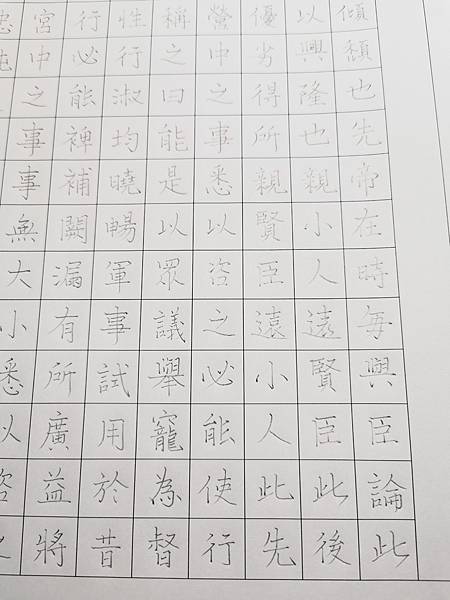 傾頹也先帝在時每與臣論此
以興隆也親小人遠賢臣此後
優劣得所親賢臣遠小人此先
營中之事悉以咨之必能使行
稱之曰能是以眾議舉寵為督
性行淑均曉暢軍事試用於昔
行必能裨補闕漏有所廣益將
宮中之事事無大小悉以咨之
忠純